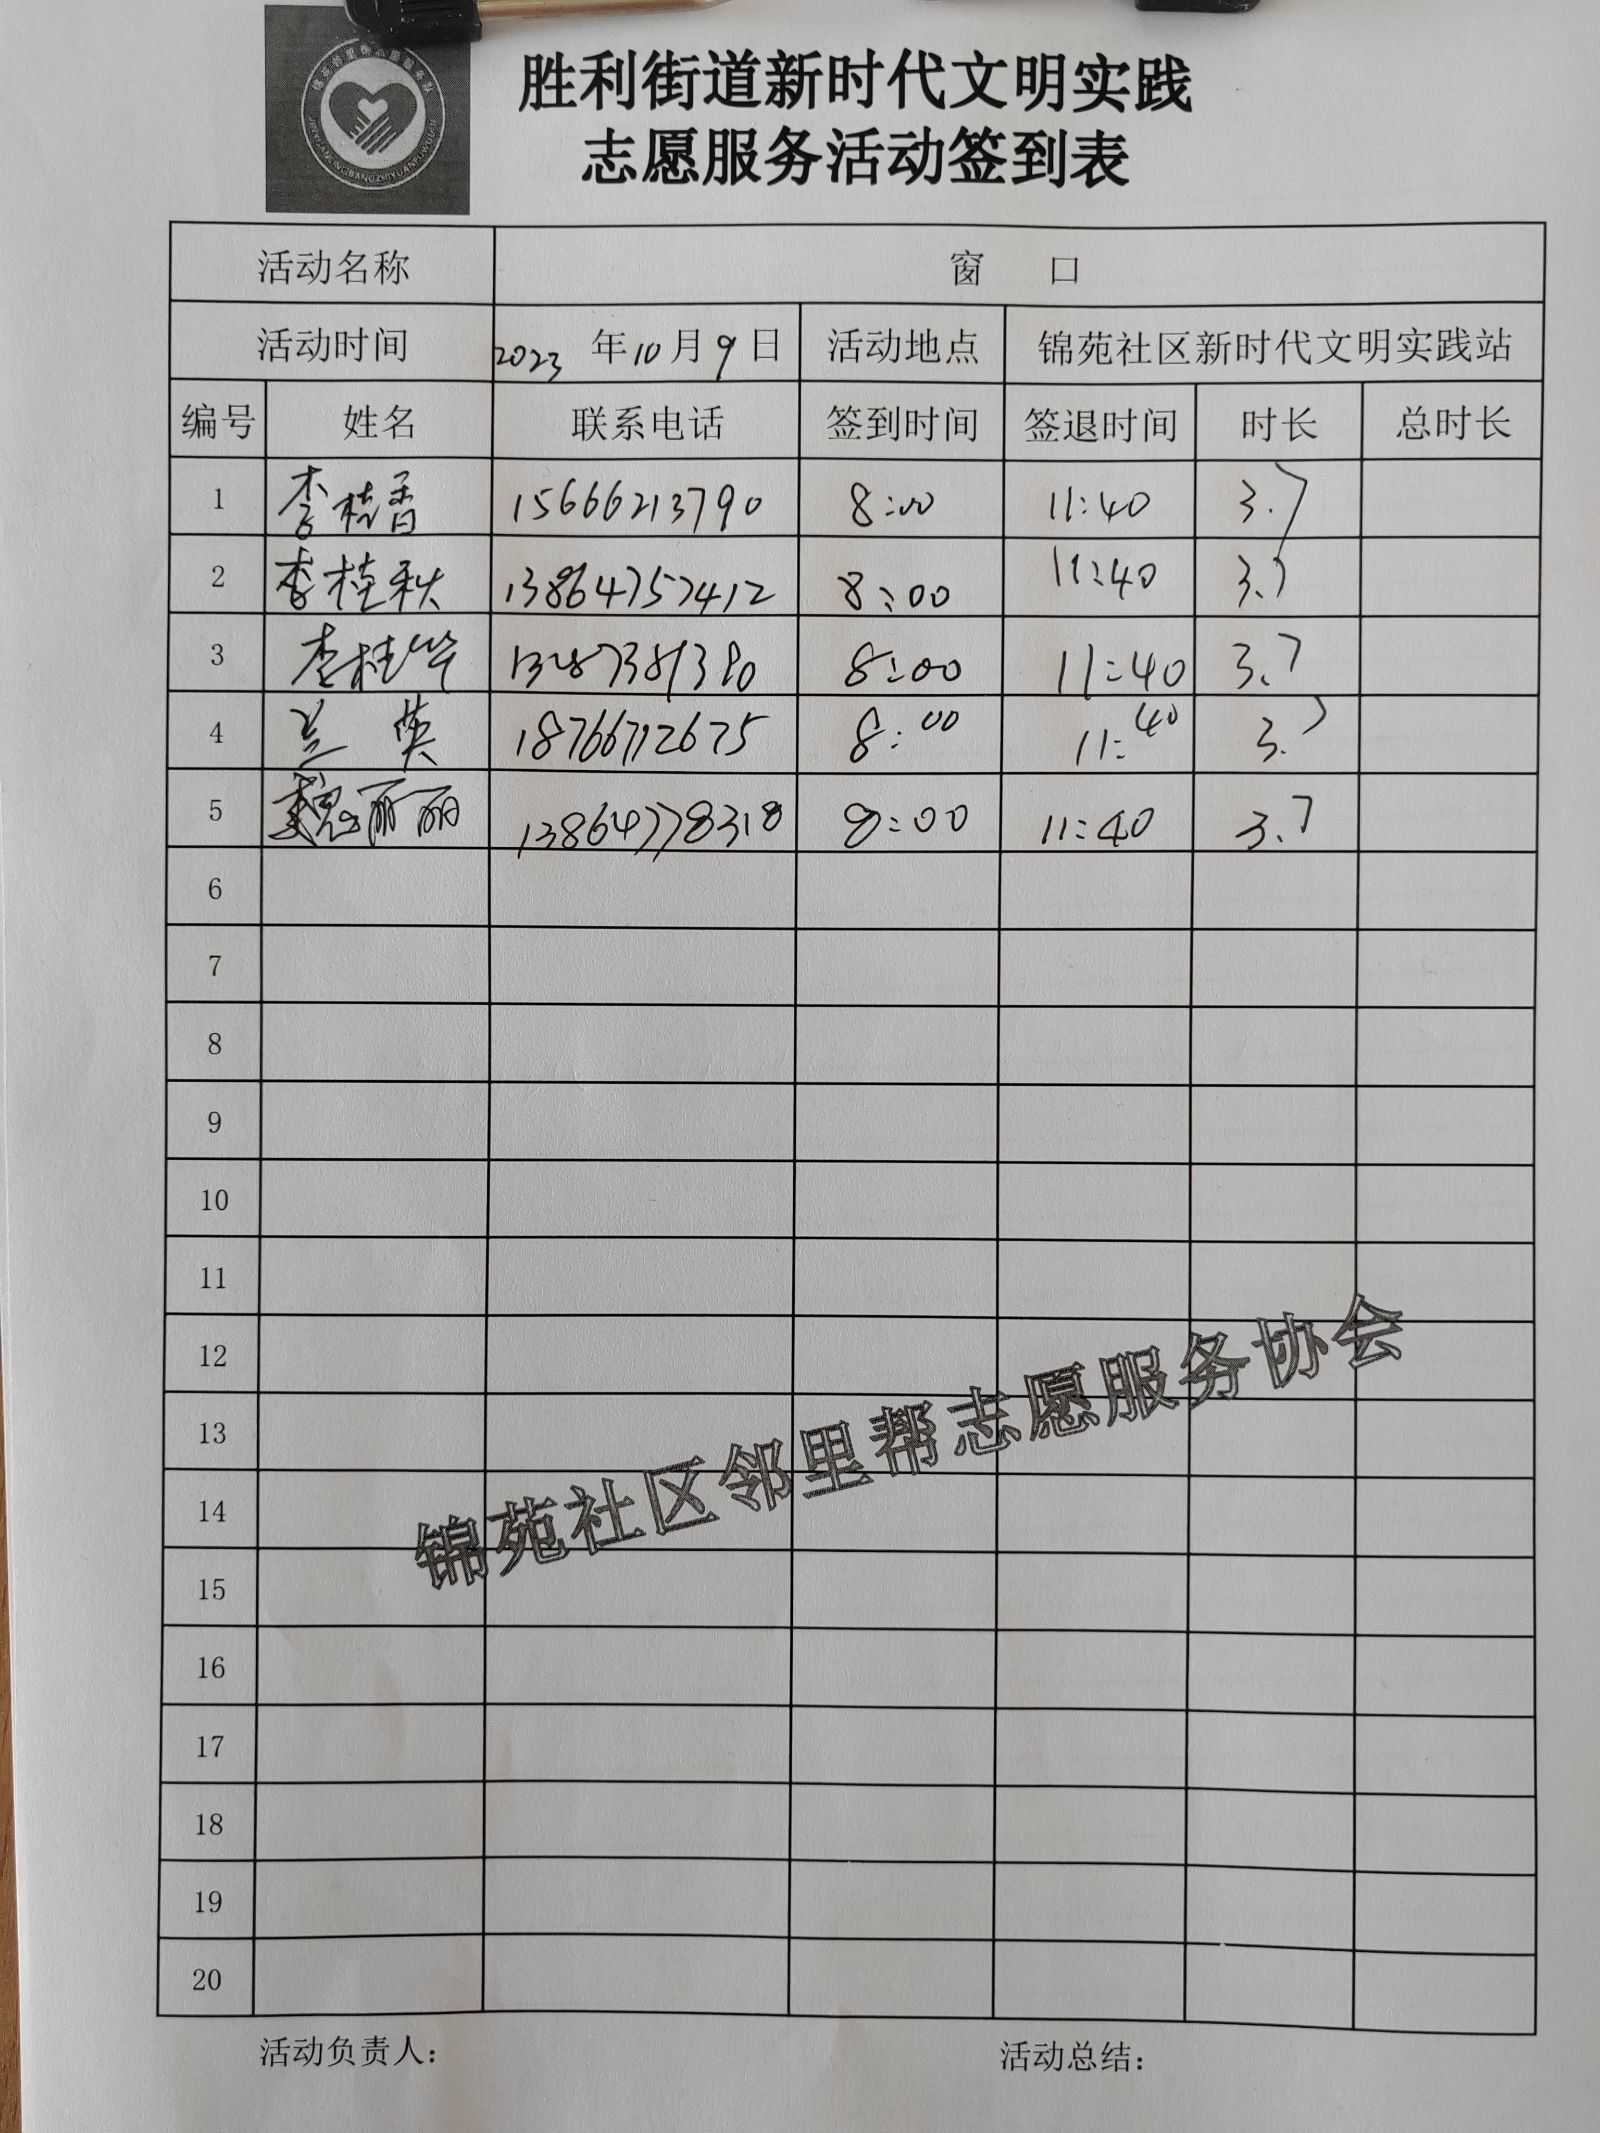 胜利街道新时代文明实践
志愿服务活动签到表
活动名称 窗 口
活动时间 2023 年 10 月 9 日 活动地点 锦苑社区新时代文明实践站
编号 姓名 联系电话 签到时间 签退时间 时长 总时长
1 李桂香 15666213790 8:00 11:40 3.7
2 李桂秋 13864757412 8:00 11:40 3.7
3 李桂华 8:00 11:40 3.7
4 兰英 18766712675 8:00 11:40 3.7
5 魏丽丽 13864778318 8:00 11:40 3.7
6
7
8
9
10
11
12
13
14
15
16
17
18
19
20
锦苑社区邻里帮志愿服务协会
活动负责人： 活动总结：